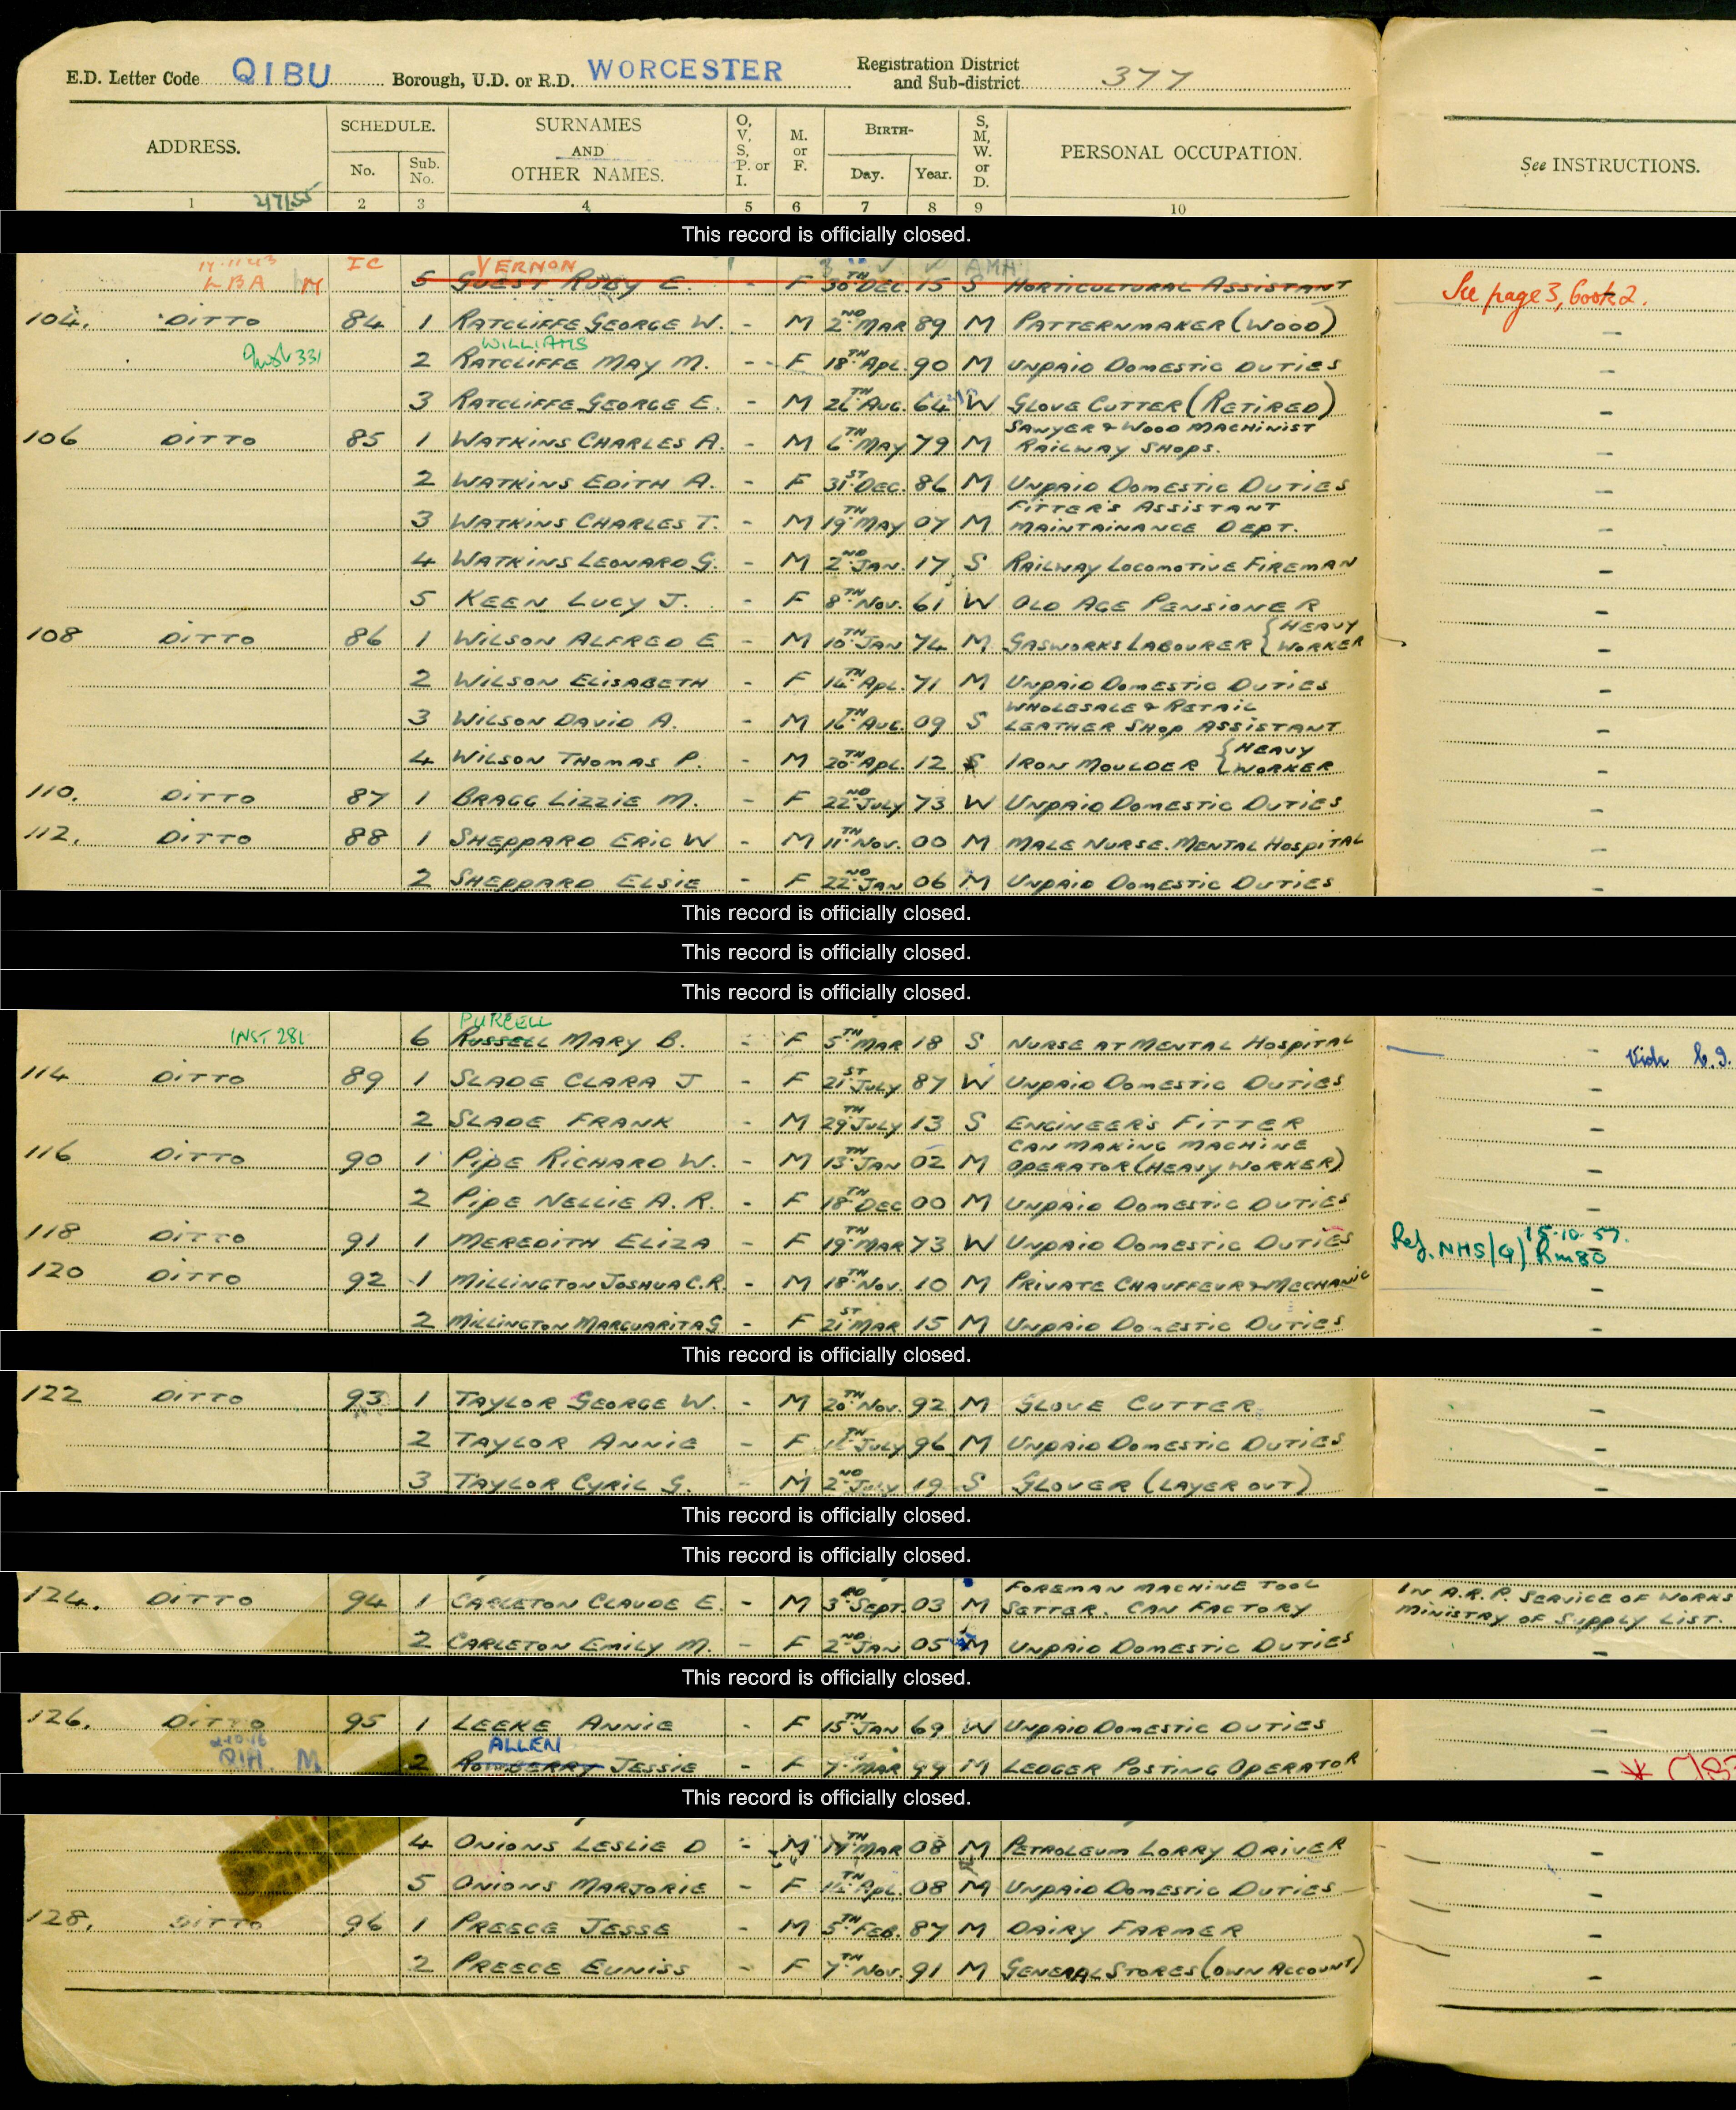 E.D. Letter Code QIBU Borough, U.D. or R.D. WORCESTER Registration District and Sub-district 377
ADDRESS. SCHEDULE. No. Sub. No. SURNAMES AND OTHER NAMES. O, V, S, P. or I. M. or F. BIRTH- Day. Year. S, M, W. or D. PERSONAL OCCUPATION. See INSTRUCTIONS.
1 2 3 4 5 6 7 8 9 10
This record is officially closed.
LBA M IC VERNON
5 GUEST RUBY E. - F 30TH DEC. 15 S HORTICULTURAL ASSISTANT See page 3, book 2.
104. DITTO 84 1 RATCLIFFE GEORGE W. - M 2ND MAR 89 M PATTERNMAKER (WOOD) -
WILLIAMS
331 2 RATCLIFFE MAY M. - F 18TH APL. 90 M UNPAID DOMESTIC DUTIES -
3 RATCLIFFE GEORGE E. - M AUG. 64 W GLOVE CUTTER (RETIRED) -
106 DITTO 85 1 WATKINS CHARLES A. - M 6TH MAY 79 M SAWYER & WOOD MACHINIST RAILWAY SHOPS. -
2 WATKINS EDITH A. - F 31ST DEC. 86 M UNPAID DOMESTIC DUTIES -
3 WATKINS CHARLES T. - M 19TH MAY 07 M FITTER'S ASSISTANT MAINTAINANCE DEPT. -
4 WATKINS LEONARD G. - M 2ND JAN. 17 S RAILWAY LOCOMOTIVE FIREMAN -
5 KEEN LUCY J. - F 8TH NOV. 61 W OLD AGE PENSIONER -
108 DITTO 86 1 WILSON ALFRED E - M 10TH JAN 74 M GASWORKS LABOURER {HEAVY WORKER -
2 WILSON ELISABETH - F 14TH APL. 71 M UNPAID DOMESTIC DUTIES -
3 WILSON DAVID A. - M 16TH AUG. 09 S WHOLESALE & RETAIL LEATHER SHOP ASSISTANT -
4 WILSON THOMAS P. - M 20TH APL. 12 S IRON MOULDER {HEAVY WORKER -
110. DITTO 87 1 BRAGG LIZZIE M. - F 22ND JULY 73 W UNPAID DOMESTIC DUTIES -
112. DITTO 88 1 SHEPPARD ERIC W - M 11TH NOV. 00 M MALE NURSE. MENTAL HOSPITAL -
2 SHEPPARD ELSIE - F 22ND JAN 06 M UNPAID DOMESTIC DUTIES -
This record is officially closed.
This record is officially closed.
This record is officially closed.
PURCELL
INST 281 6 RUSSELL MARY B. - F 5TH MAR 18 S NURSE AT MENTAL HOSPITAL -
114 DITTO 89 1 SLADE CLARA J - F 21ST JULY 87 W UNPAID DOMESTIC DUTIES -
2 SLADE FRANK - M 29TH JULY 13 S ENGINEER'S FITTER -
116 DITTO 90 1 PIPE RICHARD W. - M 13TH JAN 02 M CAN MAKING MACHINE OPERATOR (HEAVY WORKER) -
2 PIPE NELLIE A. R. - F 18TH DEC 00 M UNPAID DOMESTIC DUTIES -
118 DITTO 91 1 MEREDITH ELIZA - F 19TH MAR 73 W UNPAID DOMESTIC DUTIES Ref. NHS/(Q) 15.10.57. Rm 80
120 DITTO 92 1 MILLINGTON JOSHUA C.R. - M 18TH NOV. 10 M PRIVATE CHAUFFEUR & MECHANIC -
2 MILLINGTON MARGUARITA G - F 21ST MAR 15 M UNPAID DOMESTIC DUTIES -
This record is officially closed.
122 DITTO 93 1 TAYLOR GEORGE W. - M 20TH NOV. 92 M GLOVE CUTTER -
2 TAYLOR ANNIE - F JULY 96 M UNPAID DOMESTIC DUTIES -
3 TAYLOR CYRIL G. - M 2ND JULY 19 S GLOVER (LAYER OUT) -
This record is officially closed.
This record is officially closed.
124. DITTO 94 1 CARLETON CLAUDE E. - M 3RD SEPT. 03 M FOREMAN MACHINE TOOL SETTER. CAN FACTORY IN A.R.P. SERVICE OF WORKS MINISTRY OF SUPPLY LIST.
2 CARLETON EMILY M. - F 2ND JAN 05 M UNPAID DOMESTIC DUTIES -
This record is officially closed.
126. DITTO 95 1 LEEKE ANNIE - F 15TH JAN 69 W UNPAID DOMESTIC DUTIES -
QIH. M ALLEN
2 JESSIE - F 7TH MAR 99 M LEDGER POSTING OPERATOR -
This record is officially closed.
4 ONIONS LESLIE D - M MAR 08 M PETROLEUM LORRY DRIVER -
5 ONIONS MARJORIE - F APL. 08 M UNPAID DOMESTIC DUTIES -
128. DITTO 96 1 PREECE JESSE - M 5TH FEB. 87 M DAIRY FARMER -
2 PREECE EUNISS - F 7TH NOV. 91 M GENERAL STORES (OWN ACCOUNT) -